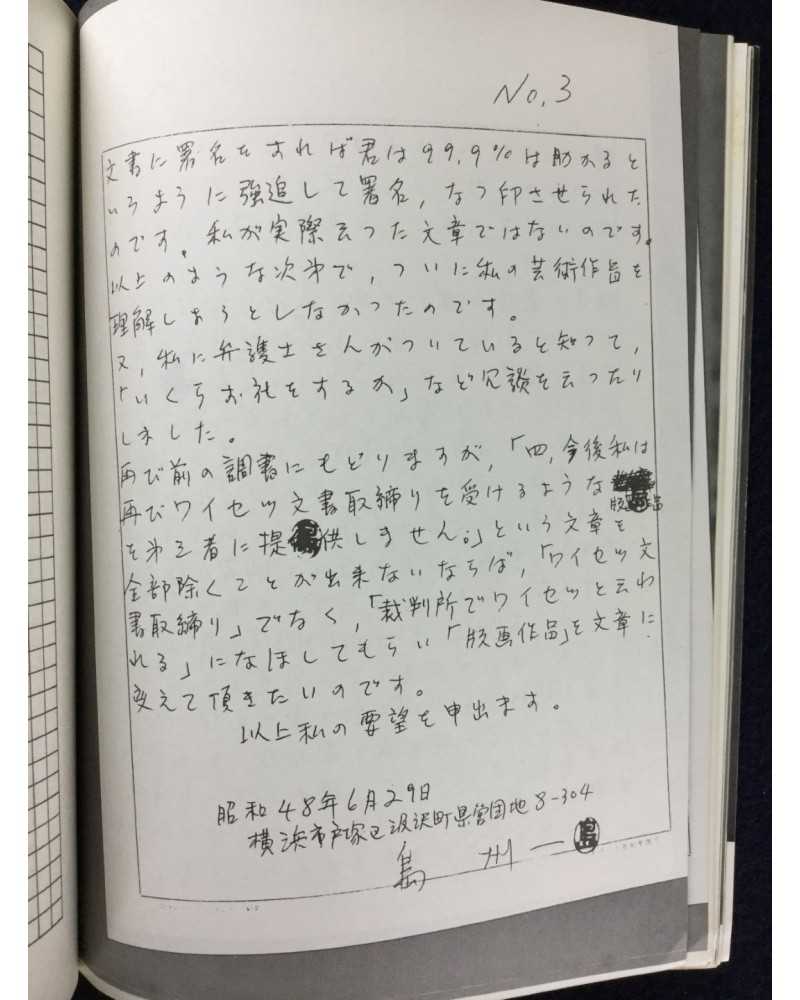 No.3
文書に署名をすれば君は99.9%は助かると
いうように強迫して署名,なつ印させられた
のです。私が実際云つた文章ではないのです。
以上のような次第で,ついに私の芸術作品を
理解しようとしなかつたのです。
又,私に弁護士さんがついていると知つて,
「いくらお礼をするか」など冗談を云つたり
しました。
再び前の調書にもどりますが,「四,今後私は
再びワイセツ文書取締りを受けるような
版画作品
を第三者に提供しません。」という文章を
全部除くことが出来ないならば,「ワイセツ文
書取締り」でなく,「裁判所でワイセツと云わ
れる」になほしてもらい「版画作品」を文章に
変えて頂きたいのです。
以上私の要望を申出ます。
昭和48年6月29日
横浜市戸塚区汲沢町県営団地8-304
島 州一